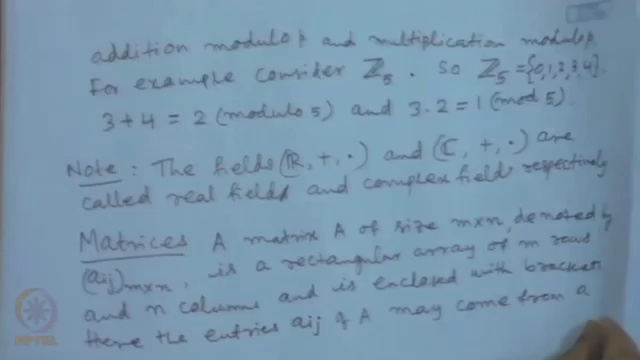 addition modulo p and multiplication modulo p.
For example consider ℤ₅. So ℤ₅ = {0,1,2,3,4}.
3 + 4 = 2 (modulo 5) and 3.2 = 1 (mod 5).
Note : The fields (ℝ, +, ·) and (ℂ, +, ·) are
called real field and complex field respectively
Matrices A matrix A of size m×n, denoted by
(aij)m×n, is a rectangular array of m rows
and n columns and is enclosed with bracket
Here the entries aij of A may come from a
NPTEL